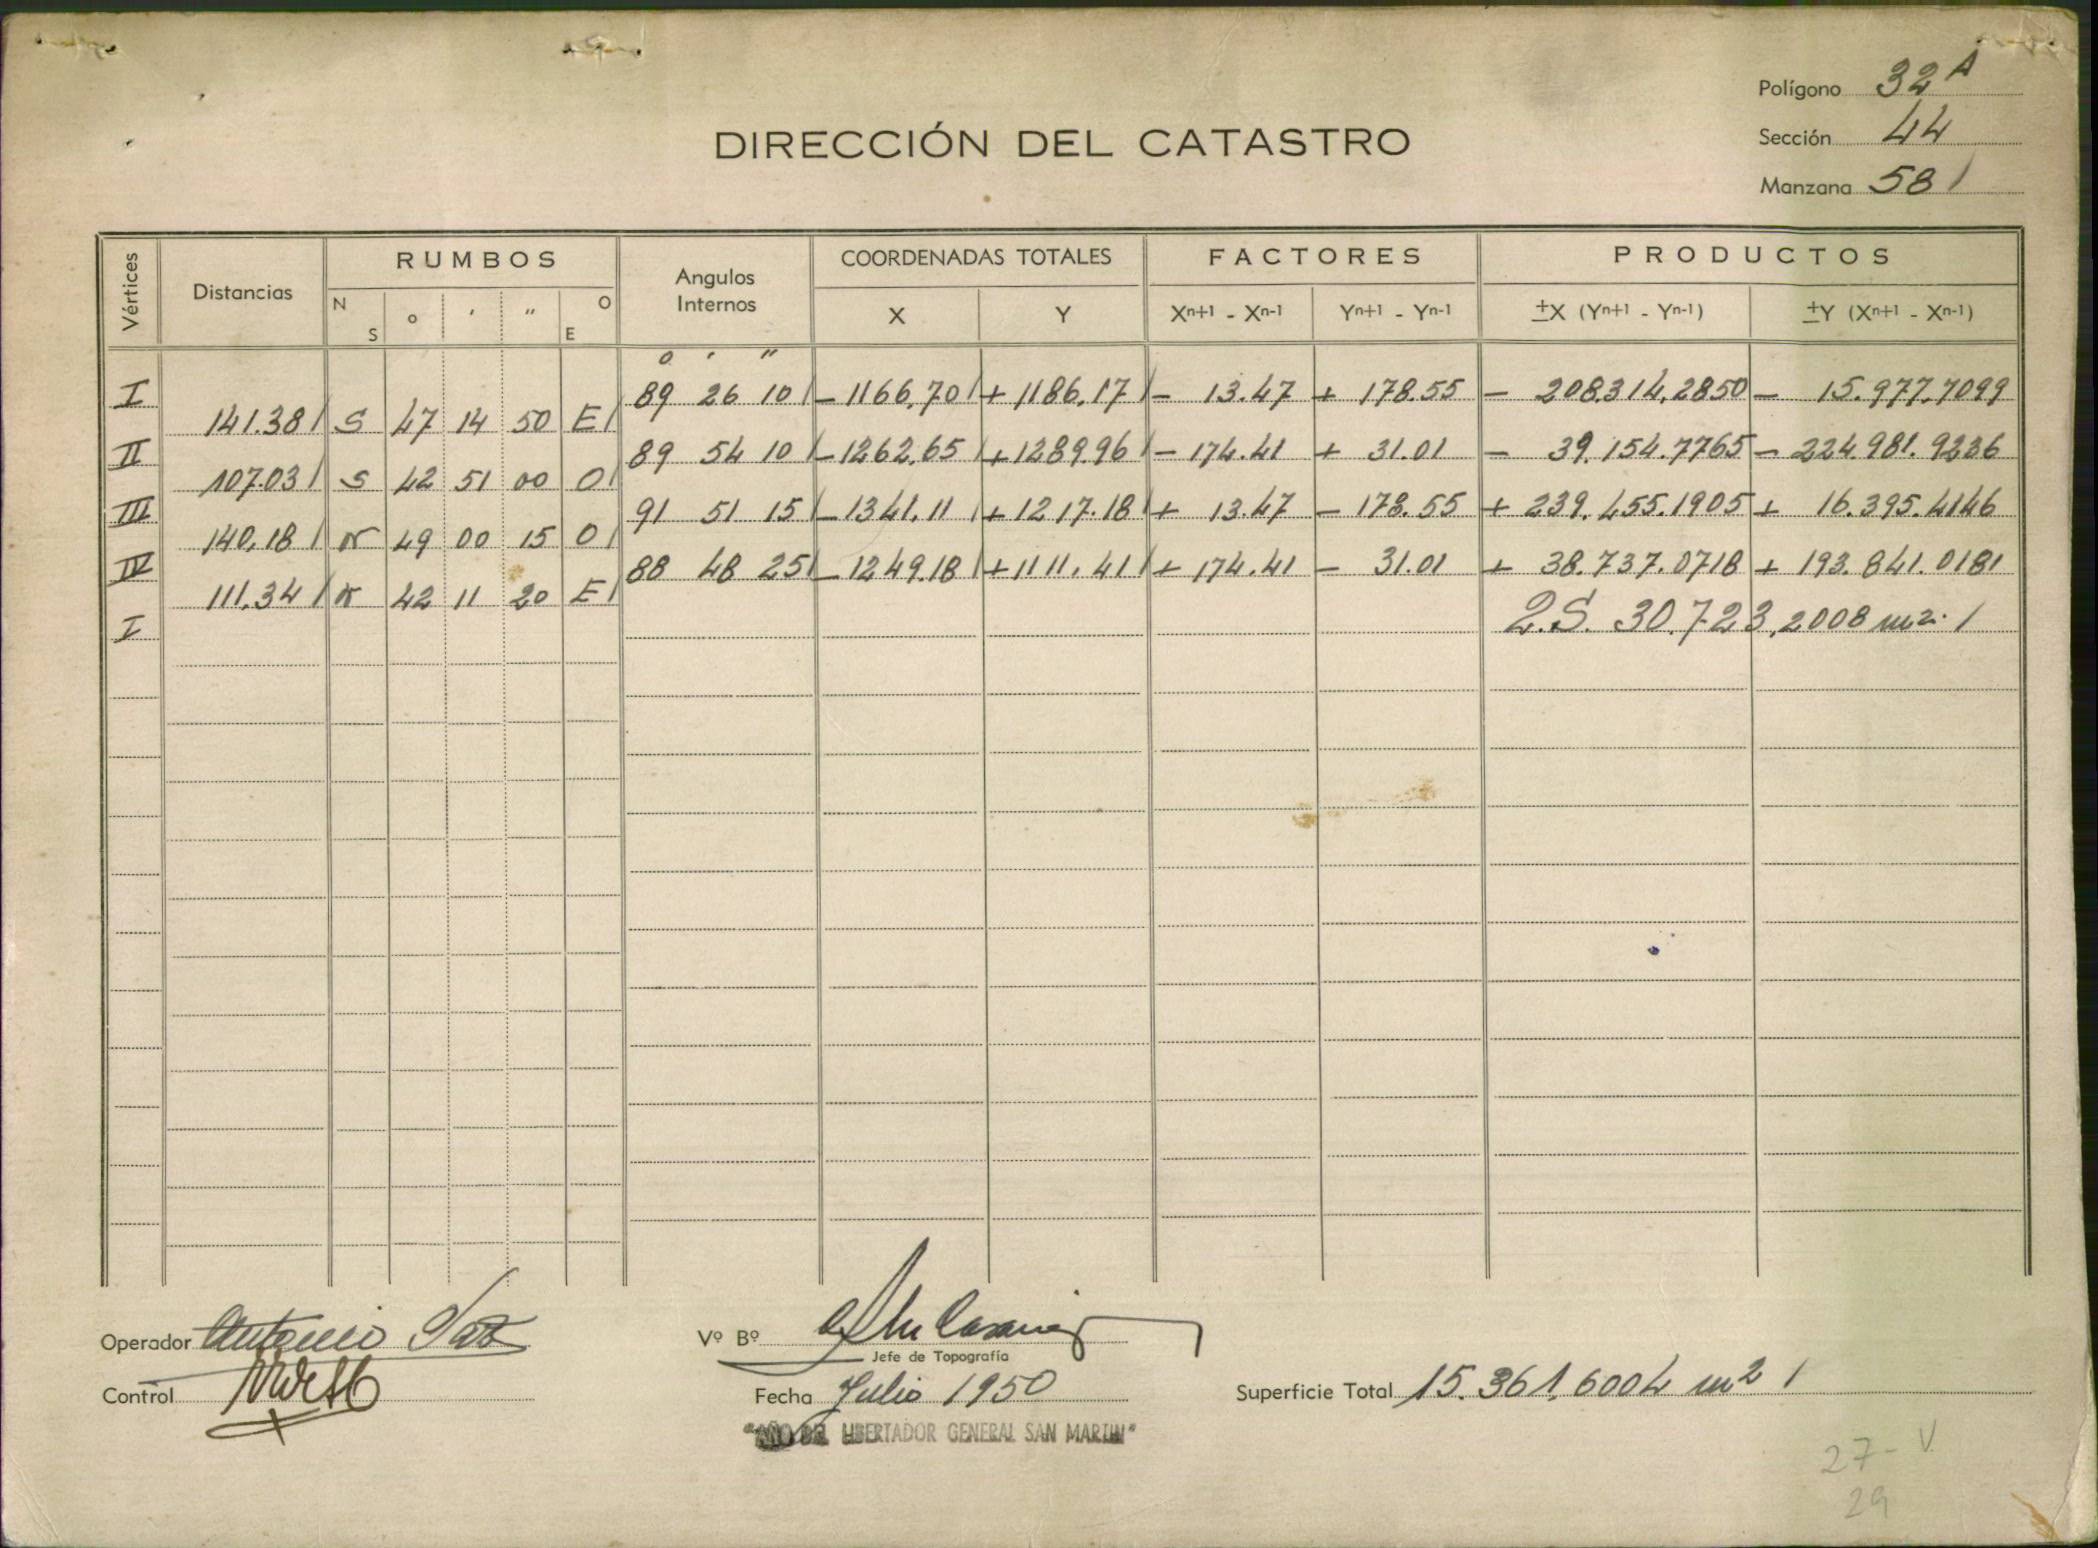 Polígono 32 A
Sección 44
Manzana 581
DIRECCIÓN DEL CATASTRO
Vértices Distancias RUMBOS Angulos Internos COORDENADAS TOTALES FACTORES PRODUCTOS
N S o ' " O E X Y Xn+1 - Xn-1 Yn+1 - Yn-1 ±X (Yn+1 - Yn-1) ±Y (Xn+1 - Xn-1)
o ' "
I 89 26 10 - 1166,70 + 1186,17 - 13.47 + 178.55 - 208.314,2850 - 15.977,7099
141.38 S 47 14 50 E
II 89 54 10 - 1262,65 + 1289,96 - 174.41 + 31.01 - 39.154.7765 - 224.981.9236
107.03 S 42 51 00 O
III 91 51 15 - 1341,11 + 1217.18 + 13.47 - 178.55 + 239.455.1905 + 16.395.4146
140,18 N 49 00 15 O
IV 88 48 25 - 1249.18 + 1111.41 + 174.41 - 31.01 + 38.737.0718 + 193.841.0181
111.34 N 42 11 20 E
I 2.S. 30.723,2008 m2.
Operador Antonio
Vº Bº
Jefe de Topografía
Control
Fecha Julio 1950
Superficie Total 15.361,6004 m2
"AÑO DEL LIBERTADOR GENERAL SAN MARTIN"
27 - V
29